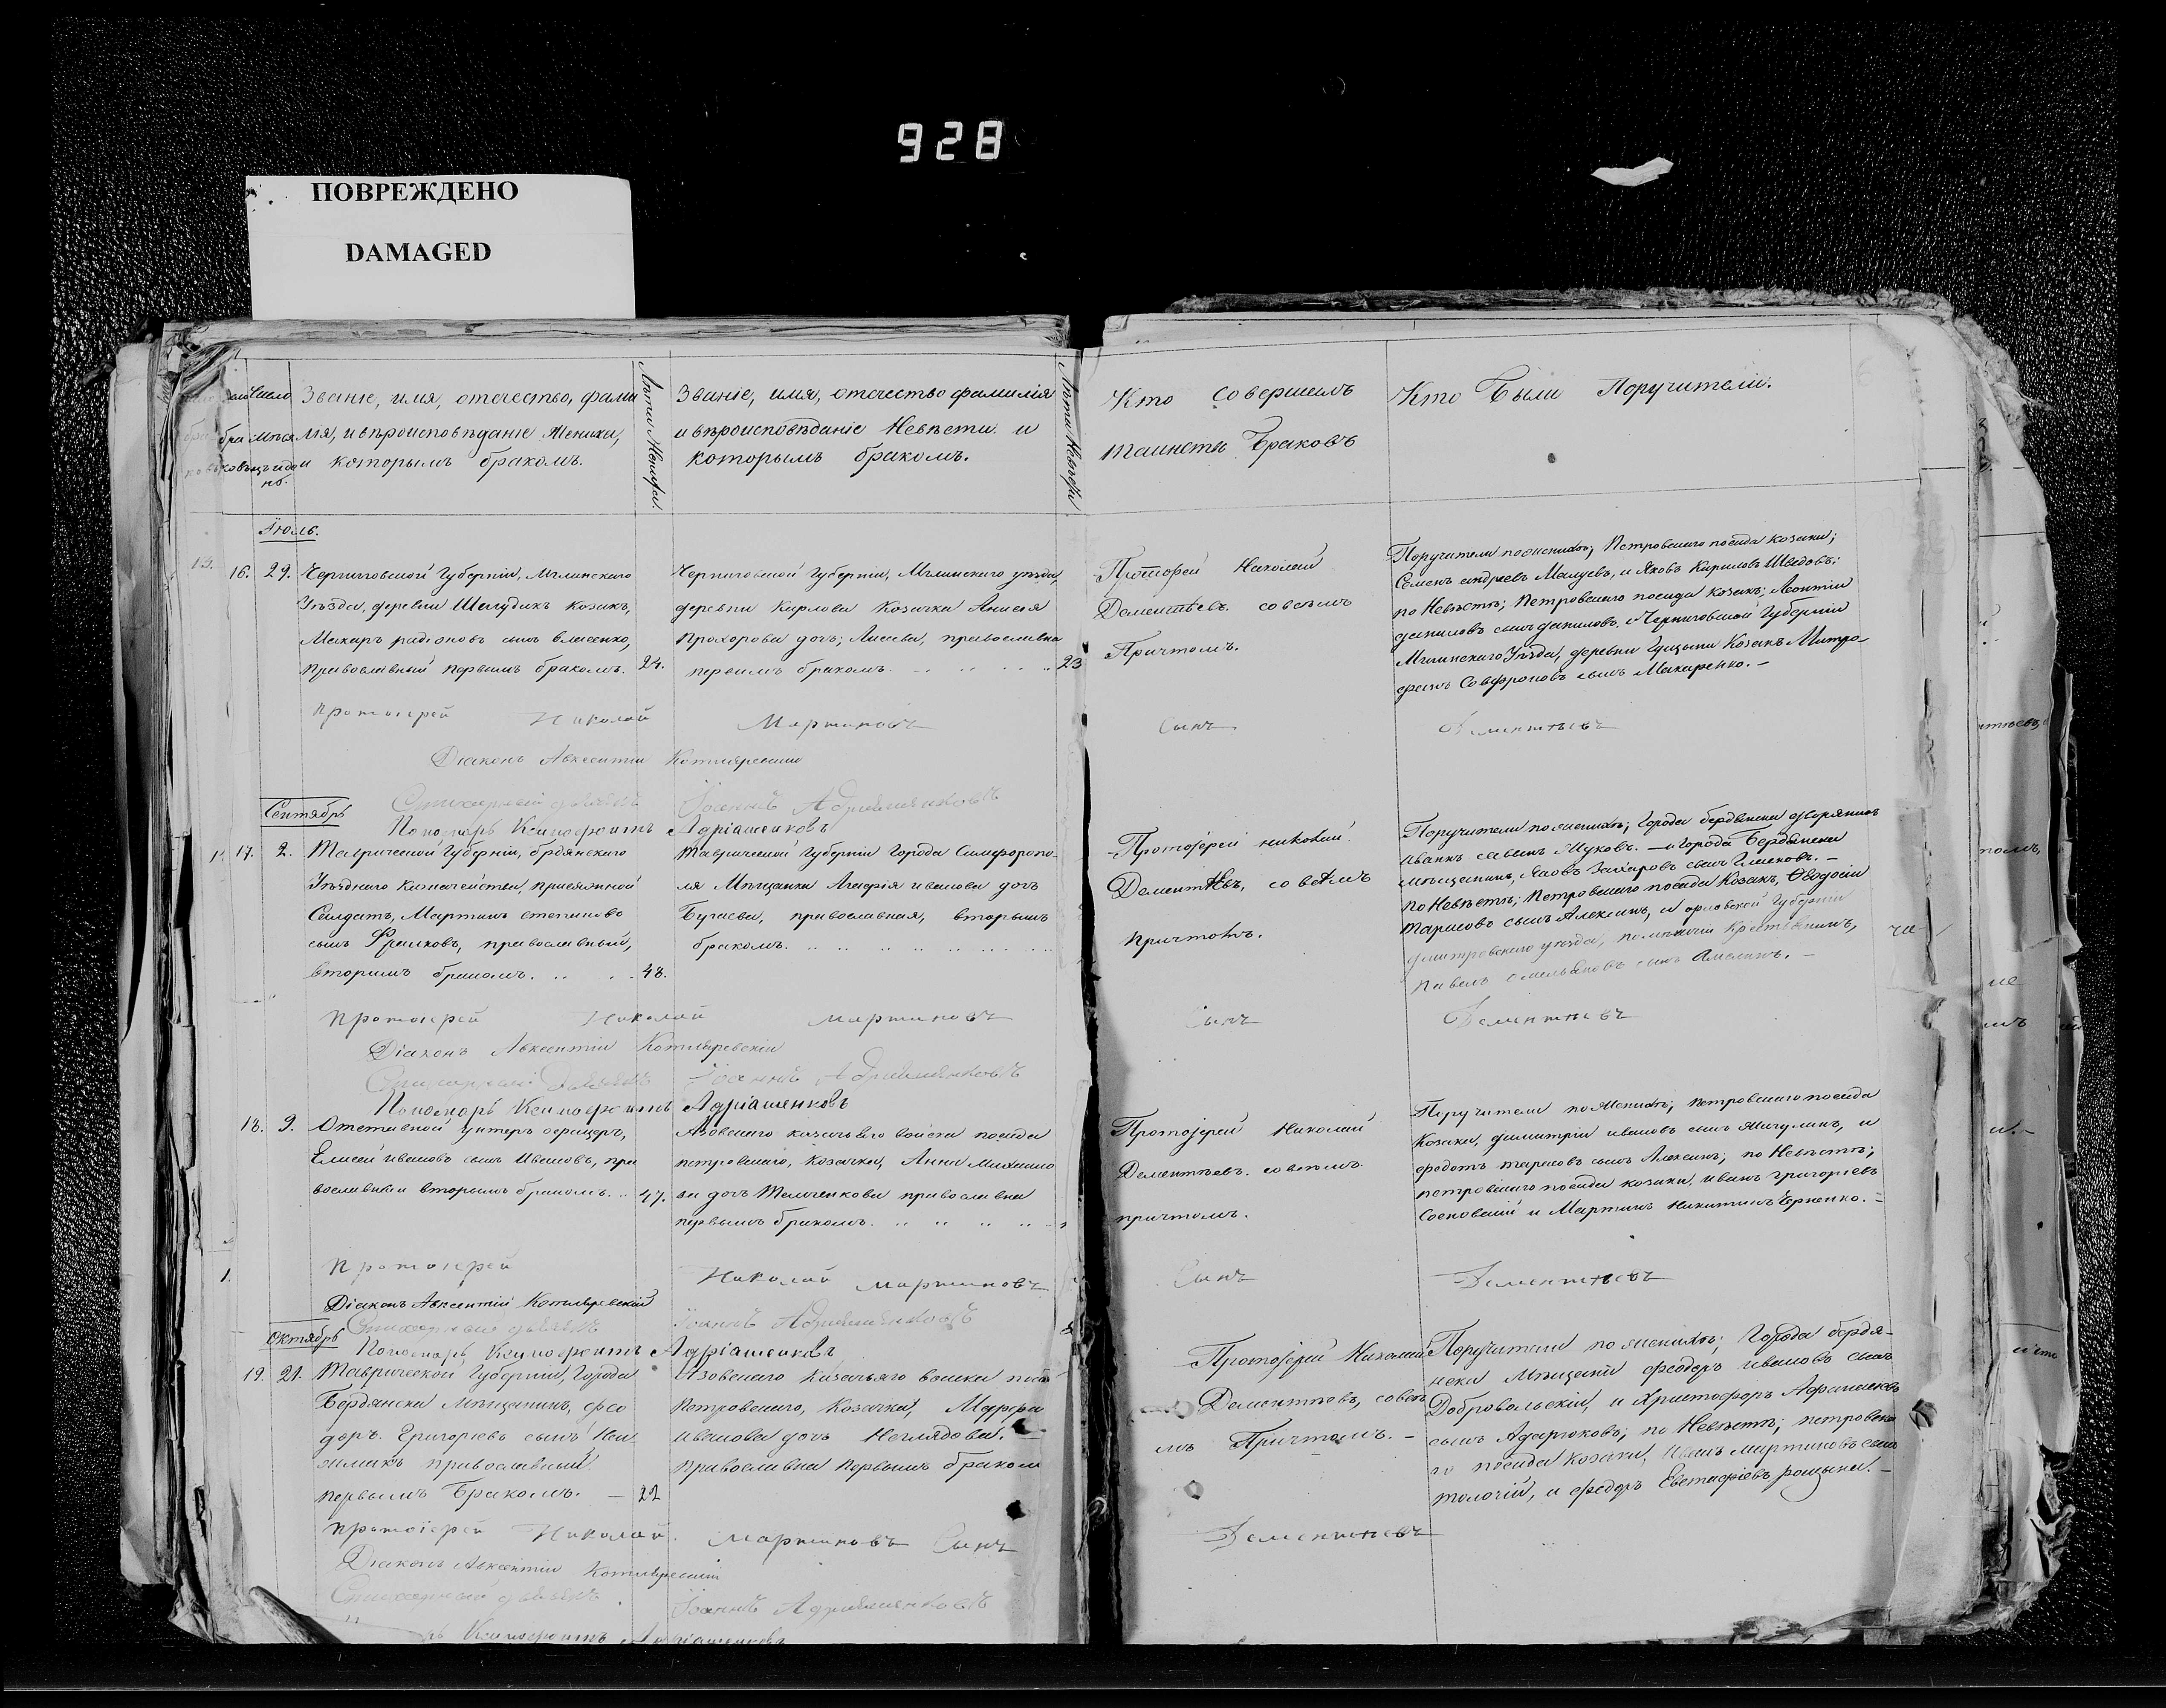 928
ПОВРЕЖДЕНО
DAMAGED
Званіе, имя, отечество, фами
лія, и вѣроисповѣданіе Жениха,
и которымъ бракомъ.
Лѣта Жениха
Званіе, имя, отечество фамилія
и вѣроисповѣданіе Невѣсти. и
которымъ бракомъ.
Лѣта Невѣсти
Кто совершалъ
таинства Браковъ
Кто были Поручители.
Іюль.
16. 29. Черниговской Губерніи, Мглинского
Уѣзда, деревни Шелудикъ козакъ,
Макаръ радіоновъ сынъ власенко,
православный первымъ бракомъ. 24.
Черниговской Губерніи, Мглинского уѣзда,
деревни Карлова Козачка Анисія
Прохорова дочь; Лисева, православна
первымъ бракомъ. 23
Протоіерей Николай
Дементьевъ со всѣмъ
Причтомъ.
Поручители по женихѣ; Петровского посада козаки;
Семенъ андреевъ Малуевъ, и Яковъ Кириловъ Шведовъ:
по Невѣстѣ; Петровского посада козакъ; Леонтій
даниловъ сынъ даниловъ. Черниговской Губерніи
Мглинского Уѣзда, деревни Козакъ Митро-
фанъ Софроновъ сынъ Макаренко. -
Протоіерей Николай Мартиновъ Сынъ Дементьевъ
Діаконъ Авксентій Котляревскій
Стихарный дьячекъ Іоаннъ Адріяшенковъ
Пономарь Ксенофонтъ Адріашенковъ
Сентябрь
17. 2. Таврической Губерніи, брдянского
Уѣздного Казначейства, присяжной
Салдатъ, Мартинъ степановъ
сынъ Фралковъ, православный,
вторимъ бракомъ. 48.
Таврической Губерніи Города Симферопо-
ля Мѣщанка Агафія иванова дочь
Бугаева, православная, вторымъ
бракомъ.
Протоіерей николай
Дементѣвъ, со всѣмъ
причтомъ.
Поручители по женихѣ; Города бердянска дворянинъ
Иванъ савинъ Жуковъ. — и Города Бердянска
мѣщанинъ, Яковъ Захаровъ сынъ -
по Невѣстѣ; Петровского посада Козакъ, Ѳеодосій
тарасовъ сынъ Алехинъ, и орловской Губерніи
дмитровского уѣзда, Крестьянинъ,
павелъ омельяновъ сынъ Амелинъ. -
Протоіерей Николай Мартиновъ Сынъ Дементьевъ
Діаконъ Авксентій Котляревскій
Стихарный Дьячекъ Іоаннъ Адріяшенковъ
Пономарь Ксенофонтъ Адріашенковъ
18. 9. Отставной унтеръ офицеръ,
Елисей ивановъ сынъ Ивановъ, пра
вославный вторымъ бракомъ. 47.
Азовского казачьяго войска посада
петровского, козачка, Анна Михайло
ва дочь Тельченкова православна
первымъ бракомъ.
Протоіерей Николай
Дементѣевъ. со всѣмъ
причтомъ.
Поручители по Женихѣ; петровского посада
Козаки, димитрій ивановъ сынъ Мигулинъ, и
федотъ тарасовъ сынъ Алехинъ; по Невѣстѣ;
петровского посада козаки, иванъ григорьевъ
Сосновскій и Мартинъ Никитинъ Черненко. -
Протоіерей Николай Мартиновъ Сынъ Дементьевъ
Діаконъ Авксентій Котляревскій
Стихарный дьячекъ Іоаннъ Адріяшенковъ
Пономарь Ксенофонтъ Адріашенковъ
Октябрь
19. 21. Таврической Губерніи, Города
Бердянска Мѣщанинъ, фео
доръ. Григорьевъ сынъ
православный
первымъ Бракомъ. — 22
Азовского Казачьяго войска поса
Петровского, Козачка, Марфа
иванова дочь Неглядова.
православна первымъ браком
Протоіерей Николай
Дементѣевъ, со всѣ
мъ Причтомъ. -
Поручители по женихѣ; Города бердя-
нска Мѣщане феодоръ ивановъ сынъ
Добровольскій, и Христофоръ Афанасьевъ
сынъ Адарюковъ; по Невѣстѣ; петровско
го посада козаки, иванъ мартиновъ сынъ
толочій, и федоръ Евстафіевъ рощына. -
Протоіерей Николай Мартиновъ Сынъ Дементьевъ
Діаконъ Авксентій Котляревскій
Стихарный дьячекъ Іоаннъ Адріяшенковъ
Ксенофонтъ